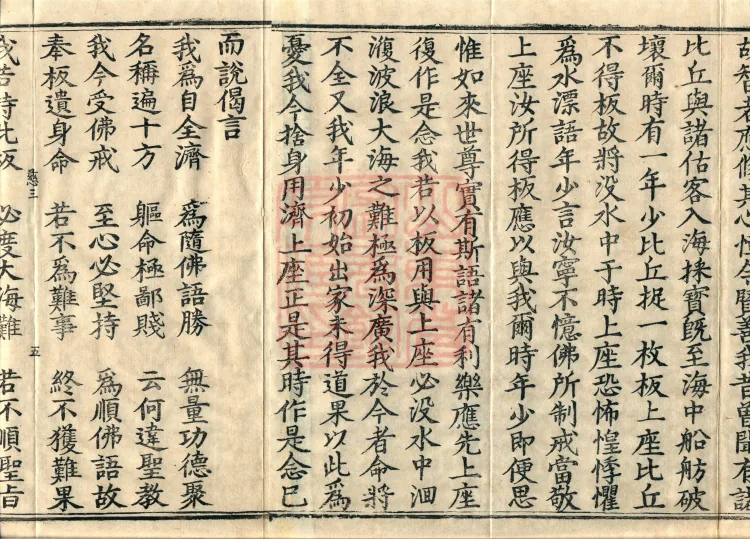 故智者應修其心恒令賢善我昔曾聞有諸
比丘與諸估客入海採寶旣至海中船舫破
壞爾時有一年少比丘捉一枚板上座比丘
不得板故將没水中于時上座恐怖惶悸懼
爲水漂語年少言汝寧不憶佛所制戒當敬
上座汝所得板應以與我爾時年少即便思
惟如來世尊實有斯語諸有利樂應先上座
復作是念我若以板用與上座必没水中洄
澓波浪大海之難極爲深廣我於今者命將
不全又我年少初始出家未得道果以此爲
憂我今捨身用濟上座正是其時作是念已
而說偈言
我爲自全濟　爲隨佛語勝　無量功德聚
名稱遍十方　軀命極鄙賤　云何違聖教
我今受佛戒　至心必堅持　爲順佛語故
奉板遺身命　若不爲難事　終不獲難果
三　五
我若持此板　必度大海難　若不順聖旨